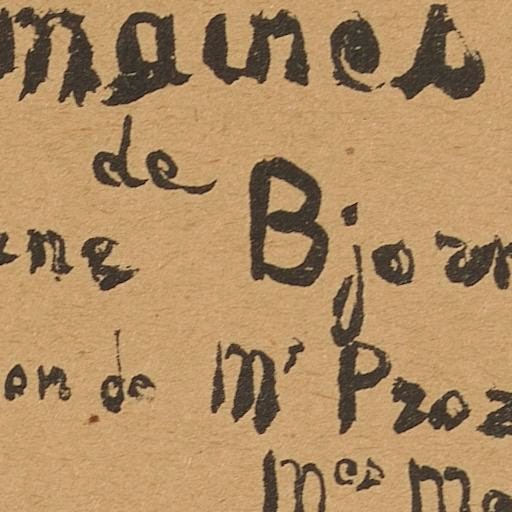 maines
de
ne Bjor
on de Mr Proz
Mes Ma